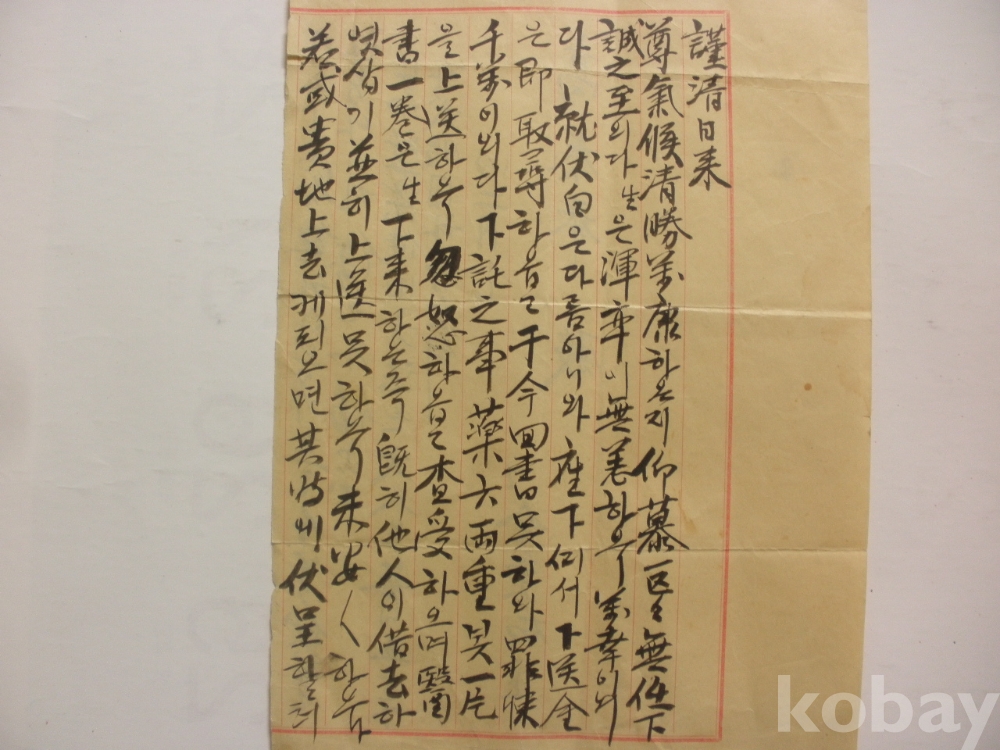 謹淸日来
尊氣候淸勝萬康하온지 仰慕區々無任下
誠之至외다 生은渾率이無恙하오 萬幸이외
다 就伏白은다름아니와 座下에서 下送金
은 即 取尋하옵고 于今回書못하와 罪悚
千萬이외다 下託之事 藥六兩重 一片
을上送하오 怒하옵고 査受하오며 醫
書一卷은生下来하는즉 旣히他人이借去하
엿삽기 並히上送못하오 未安〱하옵
若或貴地上去케되오면 其時에伏呈할
kobay